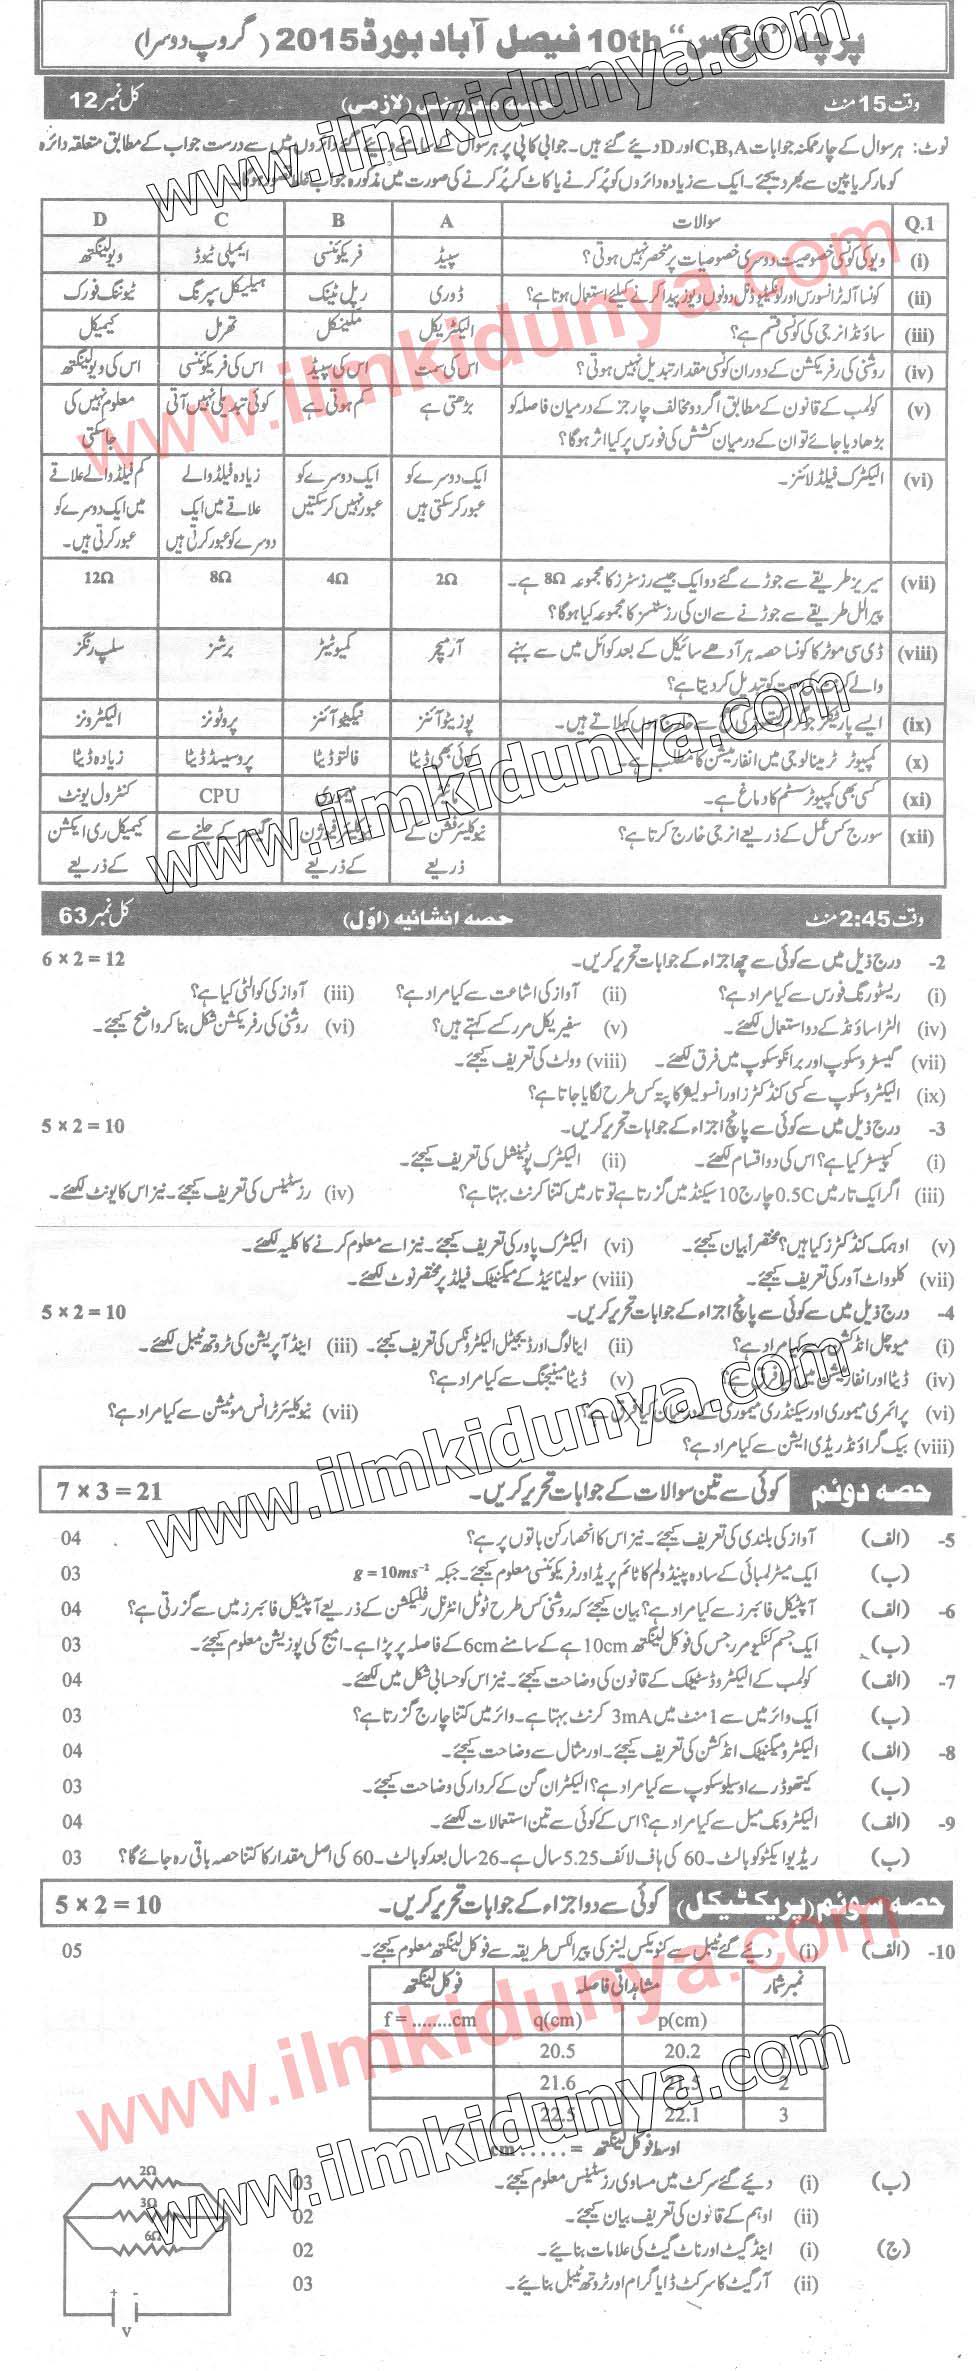 پرچہ "فزکس" 10th فیصل آباد بورڈ 2015 (گروپ دوسرا)
وقت 15 منٹ حصہ معروضی (لازمی) کل نمبر 12
نوٹ: ہر سوال کے چار ممکنہ جوابات C,B,A اور D دیئے گئے ہیں۔ جوابی کاپی پر ہر سوال کے سامنے دیئے گئے دائروں میں سے درست جواب کے مطابق متعلقہ دائرہ
کو مارکر یا پین سے بھر دیجئے۔ ایک سے زیادہ دائروں کو پُر کرنے یا کاٹ کر پُر کرنے کی صورت میں مذکورہ جواب غلط تصور ہوگا۔
Q.1 سوالات A B C D
(i) ویو کی کونسی خصوصیت دوسری خصوصیات پر منحصر نہیں ہوتی؟ سپیڈ فریکوئنسی ایمپلی ٹیوڈ ویولینگتھ
(ii) کونسا آلہ ٹرانسورس اور لونگیٹیوڈنل دونوں ویوز پیدا کرنے کیلئے استعمال ہوتا ہے؟ ڈوری رپل ٹینک ہیلیکل سپرنگ ٹیوننگ فورک
(iii) ساؤنڈ انرجی کی کونسی قسم ہے؟ الیکٹریکل مکینیکل تھرمل کیمیکل
(iv) روشنی کی رفریکشن کے دوران کونسی مقدار تبدیل نہیں ہوتی؟ اس کی سمت اس کی سپیڈ اس کی فریکوئنسی اس کی ویولینگتھ
(v) کولمب کے قانون کے مطابق اگر دو مخالف چارجز کے درمیان فاصلہ کو بڑھتی ہے کم ہوتی ہے کوئی تبدیلی نہیں آتی معلوم نہیں کی
بڑھا دیا جائے تو ان کے درمیان کشش کی فورس پر کیا اثر ہوگا؟ جاسکتی
(vi) الیکٹرک فیلڈ لائنز۔ ایک دوسرے کو ایک دوسرے کو زیادہ فیلڈ والے کم فیلڈ والے علاقے
عبور کرسکتی ہیں عبور نہیں کرسکتیں علاقے میں ایک میں ایک دوسرے کو
دوسرے کو عبور کرتی ہیں عبور کرتی ہیں۔
(vii) سیریز طریقے سے جوڑے گئے دو ایک جیسے رزسٹرز کا مجموعہ 8Ω ہے۔ 2Ω 4Ω 8Ω 12Ω
پیرالل طریقے سے جوڑنے سے ان کی رزسٹنسز کا مجموعہ کیا ہوگا؟
(viii) ڈی سی موٹر کا کونسا حصہ ہر آدھے سائیکل کے بعد کوائل میں سے بہنے آرمیچر کمیوٹیٹر برشز سلپ رنگز
والے کرنٹ کی سمت کو تبدیل کر دیتا ہے؟
(ix) ایسے پارٹیکلز جو گرم کیتھوڈ کی سطح سے خارج ہوں کہلاتے ہیں۔ پوزیٹو آئنز نیگیٹو آئنز پروٹونز الیکٹرونز
(x) کمپیوٹر ٹرمینالوجی میں انفارمیشن کا مطلب ہے۔ کوئی بھی ڈیٹا فالتو ڈیٹا پروسیسڈ ڈیٹا زیادہ ڈیٹا
(xi) کسی بھی کمپیوٹر سسٹم کا دماغ ہے۔ مانیٹر میموری CPU کنٹرول یونٹ
(xii) سورج کس عمل کے ذریعے انرجی خارج کرتا ہے؟ نیوکلیئر فشن کے نیوکلیئر فیوژن گیسز کے جلنے سے کیمیکل ری ایکشن
ذریعے کے ذریعے کے ذریعے
وقت 2:45 منٹ حصہ انشائیہ (اوّل) کل نمبر 63
2- درج ذیل میں سے کوئی سے چھ اجزاء کے جوابات تحریر کریں۔ 6 × 2 = 12
(i) ریسٹورنگ فورس سے کیا مراد ہے؟ (ii) آواز کی اشاعت سے کیا مراد ہے؟ (iii) آواز کی کوالٹی کیا ہے؟
(iv) الٹراساؤنڈ کے دو استعمال لکھئے۔ (v) سفیریکل مرر کسے کہتے ہیں؟ (vi) روشنی کی رفریکشن شکل بنا کر واضح کیجئے۔
(vii) گیسٹروسکوپ اور برانکوسکوپ میں فرق لکھئے۔ (viii) وولٹ کی تعریف کیجئے۔
(ix) الیکٹروسکوپ سے کسی کنڈکٹرز اور انسولیٹرز کا پتہ کس طرح لگایا جاتا ہے؟
3- درج ذیل میں سے کوئی سے پانچ اجزاء کے جوابات تحریر کریں۔ 5 × 2 = 10
(i) کپیسٹر کیا ہے؟ اس کی دو اقسام لکھئے۔ (ii) الیکٹرک پوٹینشل کی تعریف کیجئے۔
(iii) اگر ایک تار میں 0.5C چارج 10 سیکنڈ میں گزرتا ہے تو تار میں کتنا کرنٹ بہتا ہے؟ (iv) رزسٹینس کی تعریف کیجئے۔ نیز اس کا یونٹ لکھئے۔
(v) اوہمک کنڈکٹرز کیا ہیں؟ مختصراً بیان کیجئے۔ (vi) الیکٹرک پاور کی تعریف کیجئے۔ نیز اسے معلوم کرنے کا کلیہ لکھئے۔
(vii) کلوواٹ آور کی تعریف کیجئے۔ (viii) سولینائیڈ کے میگنیٹک فیلڈ پر مختصر نوٹ لکھئے۔
4- درج ذیل میں سے کوئی سے پانچ اجزاء کے جوابات تحریر کریں۔ 5 × 2 = 10
(i) میوچل انڈکشن سے کیا مراد ہے؟ (ii) اینالوگ اور ڈیجیٹل الیکٹرونکس کی تعریف کیجئے۔ (iii) اینڈ آپریشن کی ٹروتھ ٹیبل لکھئے۔
(iv) ڈیٹا اور انفارمیشن میں کیا فرق ہے؟ (v) ڈیٹا مینیجنگ سے کیا مراد ہے؟
(vi) پرائمری میموری اور سیکنڈری میموری کے درمیان کیا فرق ہے؟ (vii) نیوکلیئر ٹرانس موٹیشن سے کیا مراد ہے؟
(viii) بیک گراؤنڈ ریڈی ایشن سے کیا مراد ہے؟
حصہ دوئم کوئی سے تین سوالات کے جوابات تحریر کریں۔ 7 × 3 = 21
5- (الف) آواز کی بلندی کی تعریف کیجئے۔ نیز اس کا انحصار کن باتوں پر ہے؟ 04
(ب) ایک میٹر لمبائی کے سادہ پینڈولم کا ٹائم پیریڈ اور فریکوئنسی معلوم کیجئے۔ جبکہ g = 10ms⁻² 03
6- (الف) آپٹیکل فائبرز سے کیا مراد ہے؟ بیان کیجئے کہ روشنی کس طرح ٹوٹل انٹرنل رفلیکشن کے ذریعے آپٹیکل فائبرز میں سے گزرتی ہے؟ 04
(ب) ایک جسم کنکیو مرر جس کی فوکل لینگتھ 10cm ہے کے سامنے 6cm کے فاصلہ پر پڑا ہے۔ امیج کی پوزیشن معلوم کیجئے۔ 03
7- (الف) کولمب کے الیکٹروسٹیٹک کے قانون کی وضاحت کیجئے۔ نیز اس کو حسابی شکل میں لکھئے۔ 04
(ب) ایک وائر میں سے 1 منٹ میں 3mA کرنٹ بہتا ہے۔ وائر میں کتنا چارج گزرتا ہے؟ 03
8- (الف) الیکٹرومیگنیٹک انڈکشن کی تعریف کیجئے۔ اور مثال سے وضاحت کیجئے۔ 04
(ب) کیتھوڈ رے اوسیلوسکوپ سے کیا مراد ہے؟ الیکٹران گن کے کردار کی وضاحت کیجئے۔ 03
9- (الف) الیکٹرونک میل سے کیا مراد ہے؟ اس کے کوئی سے تین استعمالات لکھئے۔ 04
(ب) ریڈیو ایکٹو کوبالٹ۔60 کی ہاف لائف 5.25 سال ہے۔ 26 سال بعد کوبالٹ۔60 کی اصل مقدار کا کتنا حصہ باقی رہ جائے گا؟ 03
حصہ سوئم (پریکٹیکل) کوئی سے دو اجزاء کے جوابات تحریر کریں۔ 5 × 2 = 10
10- (الف) (i) دیئے گئے ٹیبل سے کنویکس لینز کی پیرالکس طریقہ سے فوکل لینگتھ معلوم کیجئے۔ 05
نمبر شمار مشاہداتی فاصلہ فوکل لینگتھ
p(cm) q(cm) f = ........cm
1 20.2 20.5
2 21.5 21.6
3 22.1 22.5
اوسط فوکل لینگتھ = ..... cm
(ب) (i) دیئے گئے سرکٹ میں مساوی رزسٹینس معلوم کیجئے۔ 03
(ii) اوہم کے قانون کی تعریف بیان کیجئے۔ 02
(ج) (i) اینڈ گیٹ اور ناٹ گیٹ کی علامات بنائیے۔ 02
(ii) آر گیٹ کا سرکٹ ڈایاگرام اور ٹروتھ ٹیبل بنائیے۔ 03
2Ω
3Ω
6Ω
+ -
V
www.ilmkidunya.com
www.ilmkidunya.com
www.ilmkidunya.com
www.ilmkidunya.com
www.ilmkidunya.com
www.ilmkidunya.com